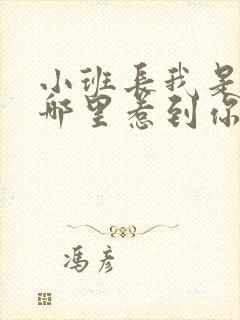 小班長我是
哪里惹到你
馮彦